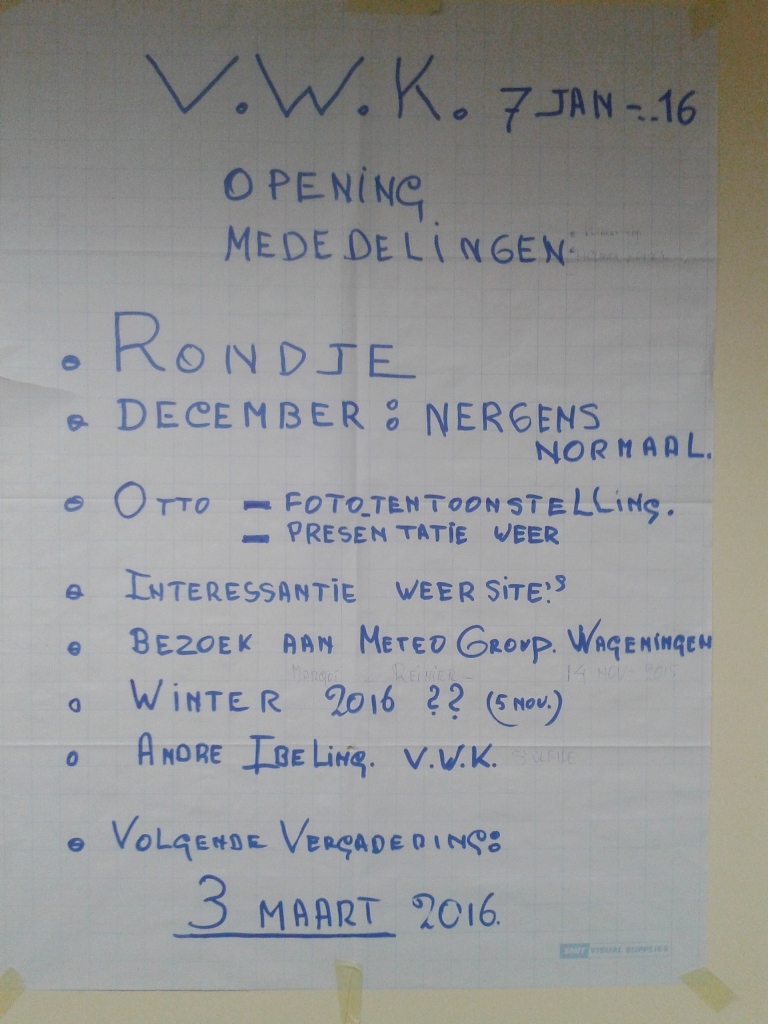 V.W.K. 7 JAN -..16
OPENING
MEDEDELINGEN
• RONDJE
• DECEMBER: NERGENS
NORMAAL.
• OTTO – FOTO_TENTOONSTELLING.
– PRESENTATIE WEER
• INTERESSANTIE WEERSITE'S
• BEZOEK AAN METEO GROUP. WAGENINGEN
REINIER – 14 NOV 2015
• WINTER 2016 ?? (5 NOV.)
• ANDRE IBELING. V.W.K.
• VOLGENDE VERGADERING:
3 MAART 2016.
VISUAL SUPPLIES